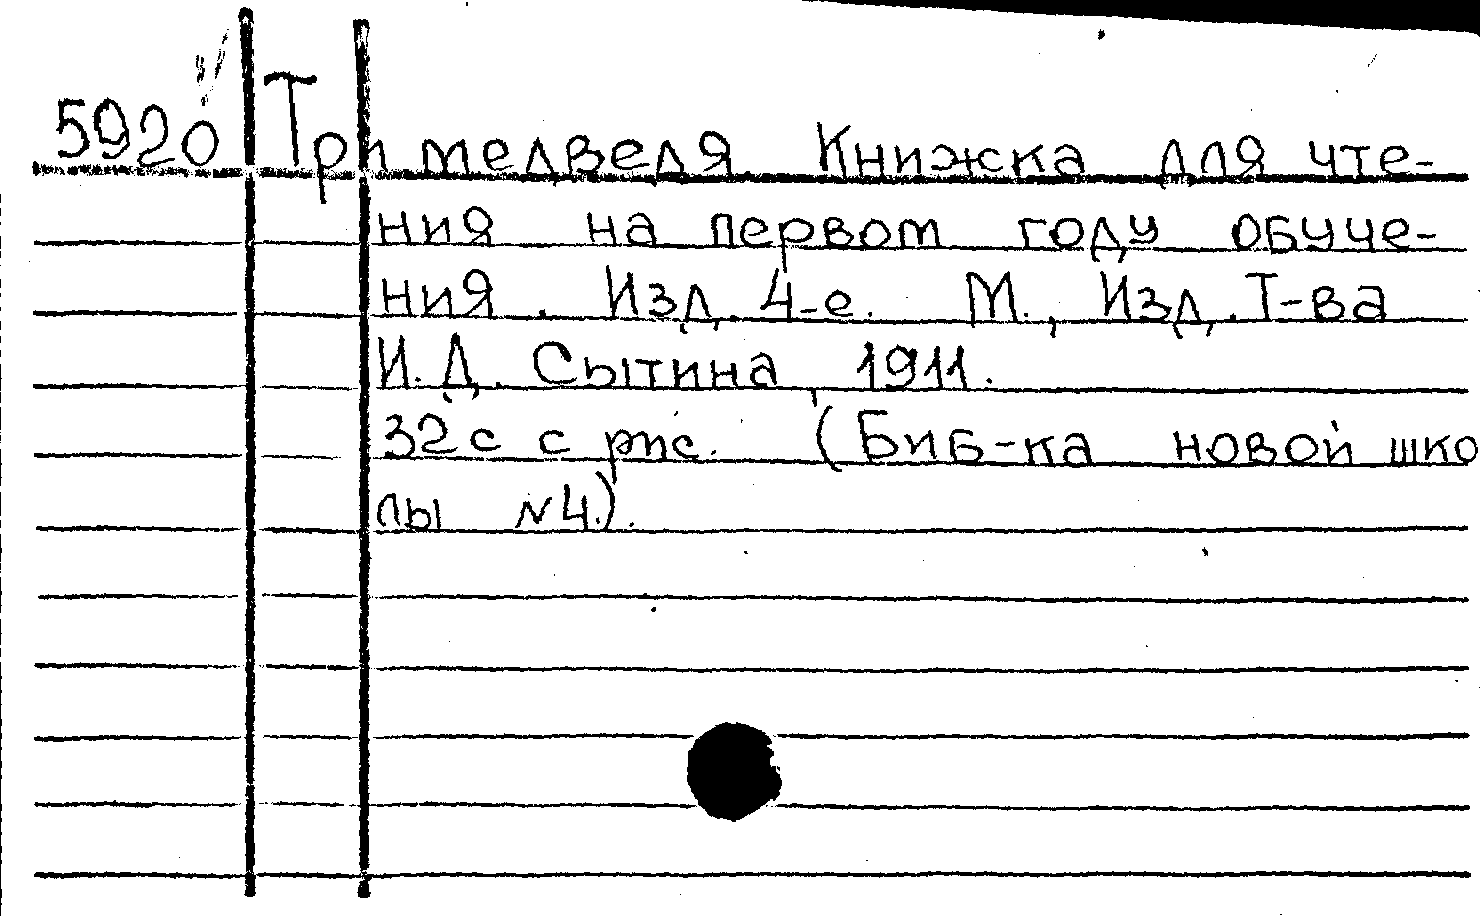 5920 Три медведя Книжка для чте-
ния на первом году обуче-
ния. Изд. 4-е. М., Изд. Т-ва
И. Д. Сытина, 1911.
32 с с рис. (Биб-ка новой шко
лы №4.).